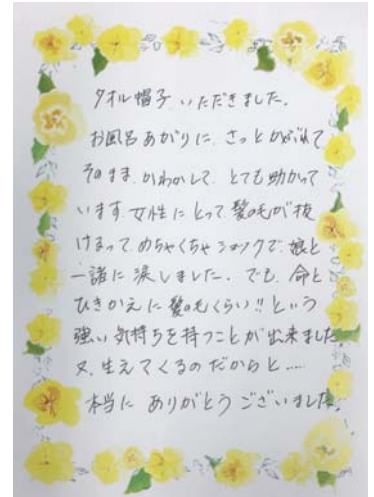 タオル帽子、いただきました。
お風呂あがりに、さっとかぶれて
そのまま、かわかして、とても助かって
います。女性にとって、髪の毛が抜
けるって、めちゃくちゃショックで、娘と
一諸に涙しました。でも、命と
ひきかえに髪の毛くらい!!という
強い気持ちを持つことが出来ました
又、生えてくるのだからと……
本当に ありがとうございました。